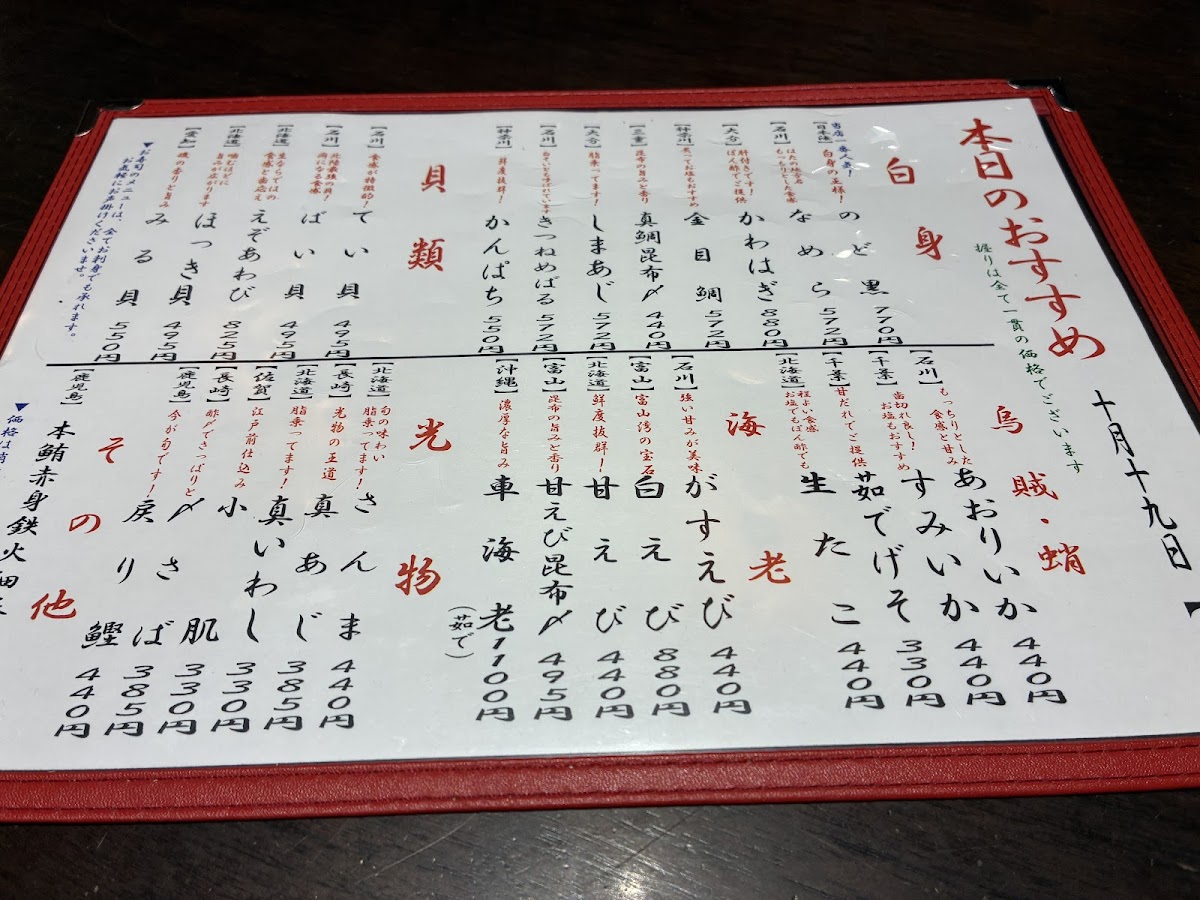 本日のおすすめ
十月十九日
握りは全て一貫の価格でございます
白身
【日本海】当店一番人気！白身の王様！のど黒 770円
【石川】はたの幼き者 もっちりした食感 なめら 572円
【大分】肝付きです！ぽん酢でご提供 かわはぎ 880円
【神奈川】炙ってお塩もおすすめ 金目鯛 572円
【三重】昆布の旨みと香り 真鯛昆布〆 440円
【大分】脂乗ってます！しまあじ 572円
【石川】きつねめばる 572円
【神奈川】鮮度抜群！かんぱち 550円
貝類
【石川】食感が特徴的！てい貝 495円
【石川】北陸最強の貝！ばい貝 495円
【北海道】生ならではの食感と歯応え えぞあわび 825円
【北海道】噛むほどに旨みが広がります ほっき貝 495円
【愛知】磯の香りと旨み みる貝 550円
▼お寿司のメニューは、全てお刺身でも承れます。
お気軽にお声掛けくださいませ。
烏賊・蛸
【石川】もっちりとした食感と甘み あおりいか 440円
【千葉】歯切れ良し！お塩もおすすめ すみいか 440円
【千葉】甘だれでご提供 茹でげそ 330円
【北海道】程よい食感 お塩でもぽん酢でも 生たこ 440円
海老
【石川】強い甘みが美味 がすえび 440円
【富山】富山湾の宝石 白えび 880円
【北海道】鮮度抜群！甘えび 440円
【富山】昆布の旨みと香り 甘えび昆布〆 495円
【沖縄】濃厚な旨み 車海老(茹で) 1100円
光物
【北海道】旬の味わい 脂乗ってます！さんま 440円
【長崎】光物の王道 真あじ 385円
【北海道】脂乗ってます！真いわし 330円
【佐賀】江戸前仕込み 小肌 330円
【長崎】酢〆でさっぱりと 〆さば 385円
【鹿児島】今が旬です！戻り鰹 440円
その他
【鹿児島】本鮪赤身鉄火細
▼価格は